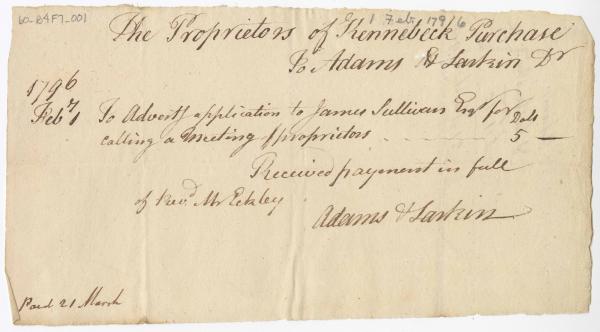 60-B4F7-001
1 Feb 1796
The Proprietors of Kennebeck Purchase
To Adams & Larkin Dr
1796
Feby 1 To Advertg application to James Sullivan Esqr for Dols
calling a Meeting of proprietors 5 —
Received payment in full
of Revd. Mr Eckley
Adams & Larkin
Paid 21 March